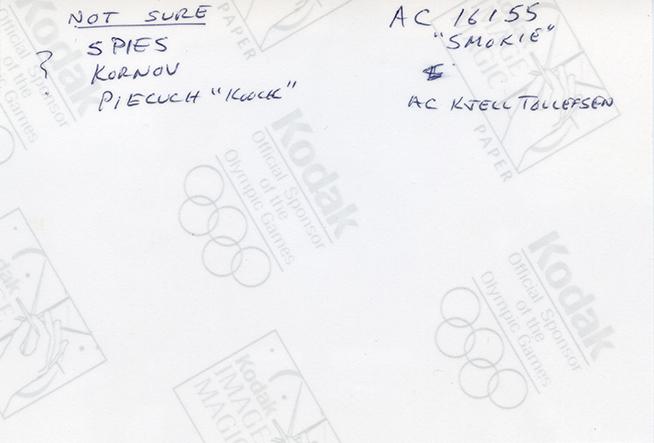 NOT SURE
? SPIES
KORNOV
PIECUCH "KLUCK"
AC 16155
"SMOKIE"
AC KJELL TOLLEFSEN
Kodak
Official Sponsor
of the
Olympic Games
Kodak
Official Sponsor
of the
Olympic Games
Kodak
Official Sponsor
of the
Olympic Games
Kodak
IMAGE
MAGIC
PAPER